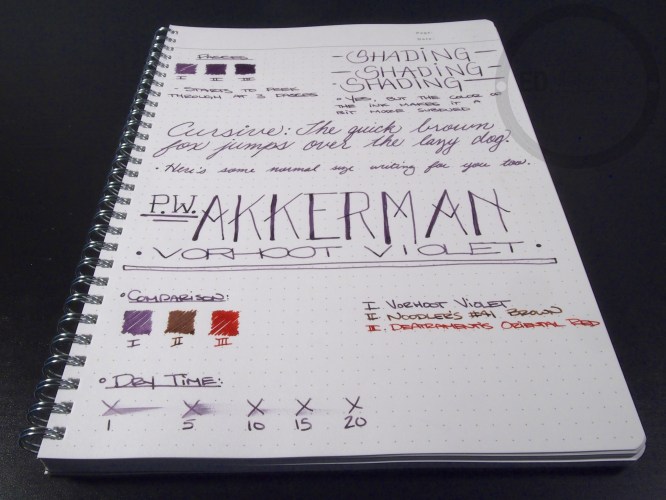 Page:
Date:
Passes
I II III
• Starts to peek
through at 3 passes
-Shading-
-Shading-
-Shading-
• Yes, but the color of
the ink makes it a
bit more subdued
Cursive: The quick brown
fox jumps over the lazy dog.
• Here's some normal size writing for you too.
P.W. AKKERMAN
• VORHOOT VIOLET •
• Comparison:
I II III
I Vorhoot Violet
II Noodler's #41 Brown
III DeAtrament's Oriental Red
• Dry Time:
X X X X X
1 5 10 15 20